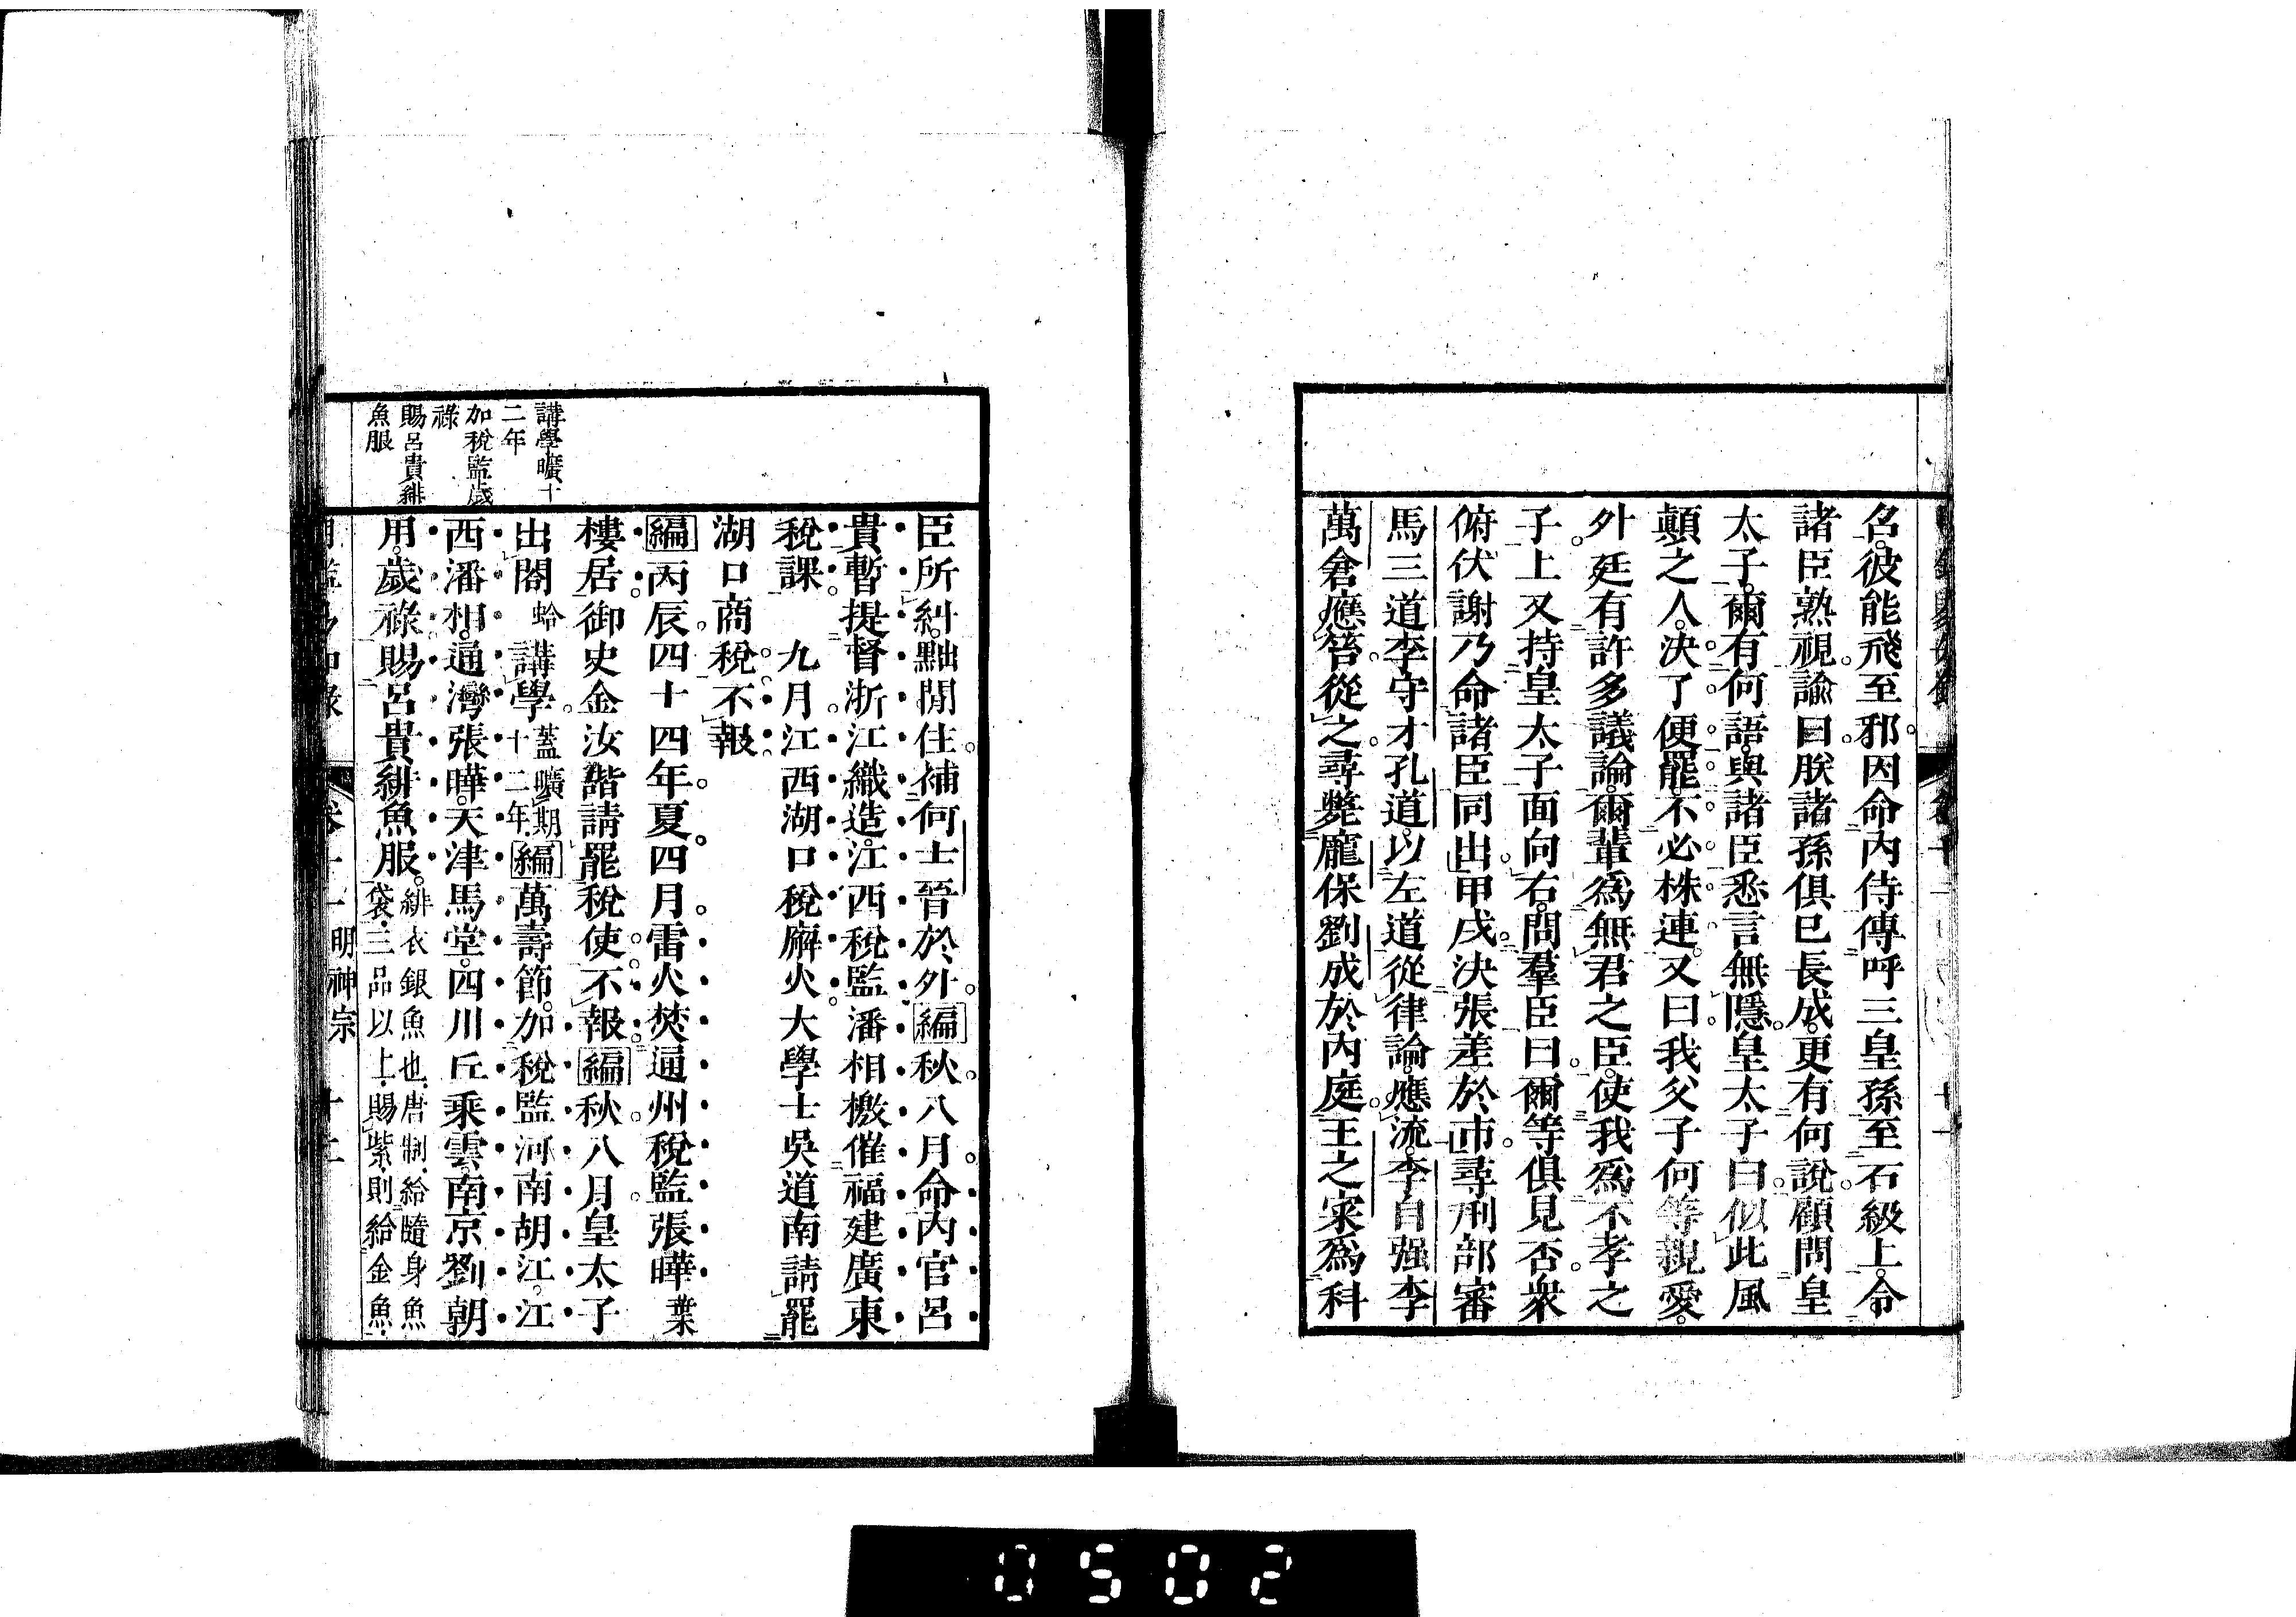 名彼能飛至邪因命內侍傳呼三皇孫至石級上令
諸臣熟視諭曰朕諸孫俱已長成更有何說顧問皇
太子爾有何語與諸臣悉言無隱皇太子曰似此風
顛之人決了便罷不必株連又曰我父子何等親愛
外廷有許多議論爾輩為無君之臣使我為不孝之
子上又持皇太子面向右問羣臣曰爾等俱見否衆
俯伏謝乃命諸臣同出甲戌決張差於市尋刑部審
馬三道李守才孔道以左道從律論應流李自强李
萬倉應笞從之尋斃龐保劉成於內庭王之寀為科
臣所糾黜閒住補何士晉於外編秋八月命內官呂
貴暫提督浙江織造江西稅監潘相檄催福建廣東
稅課 九月江西湖口稅廨火大學士吳道南請罷
湖口商稅不報
編丙辰四十四年夏四月雷火焚通州稅監張曄葉
樓居御史金汝諧請罷稅使不報編秋八月皇太子
講學曠十
二年
出閤 蛤 講學 蓋曠期十二年 編萬壽節加稅監河南胡江江
加稅監歲
祿
西潘相通灣張曄天津馬堂四川丘乘雲南京劉朝
賜呂貴緋
魚服
用歲祿賜呂貴緋魚服 緋衣銀魚也唐制給隨身魚袋三品以上賜紫則給金魚
明神宗
0502